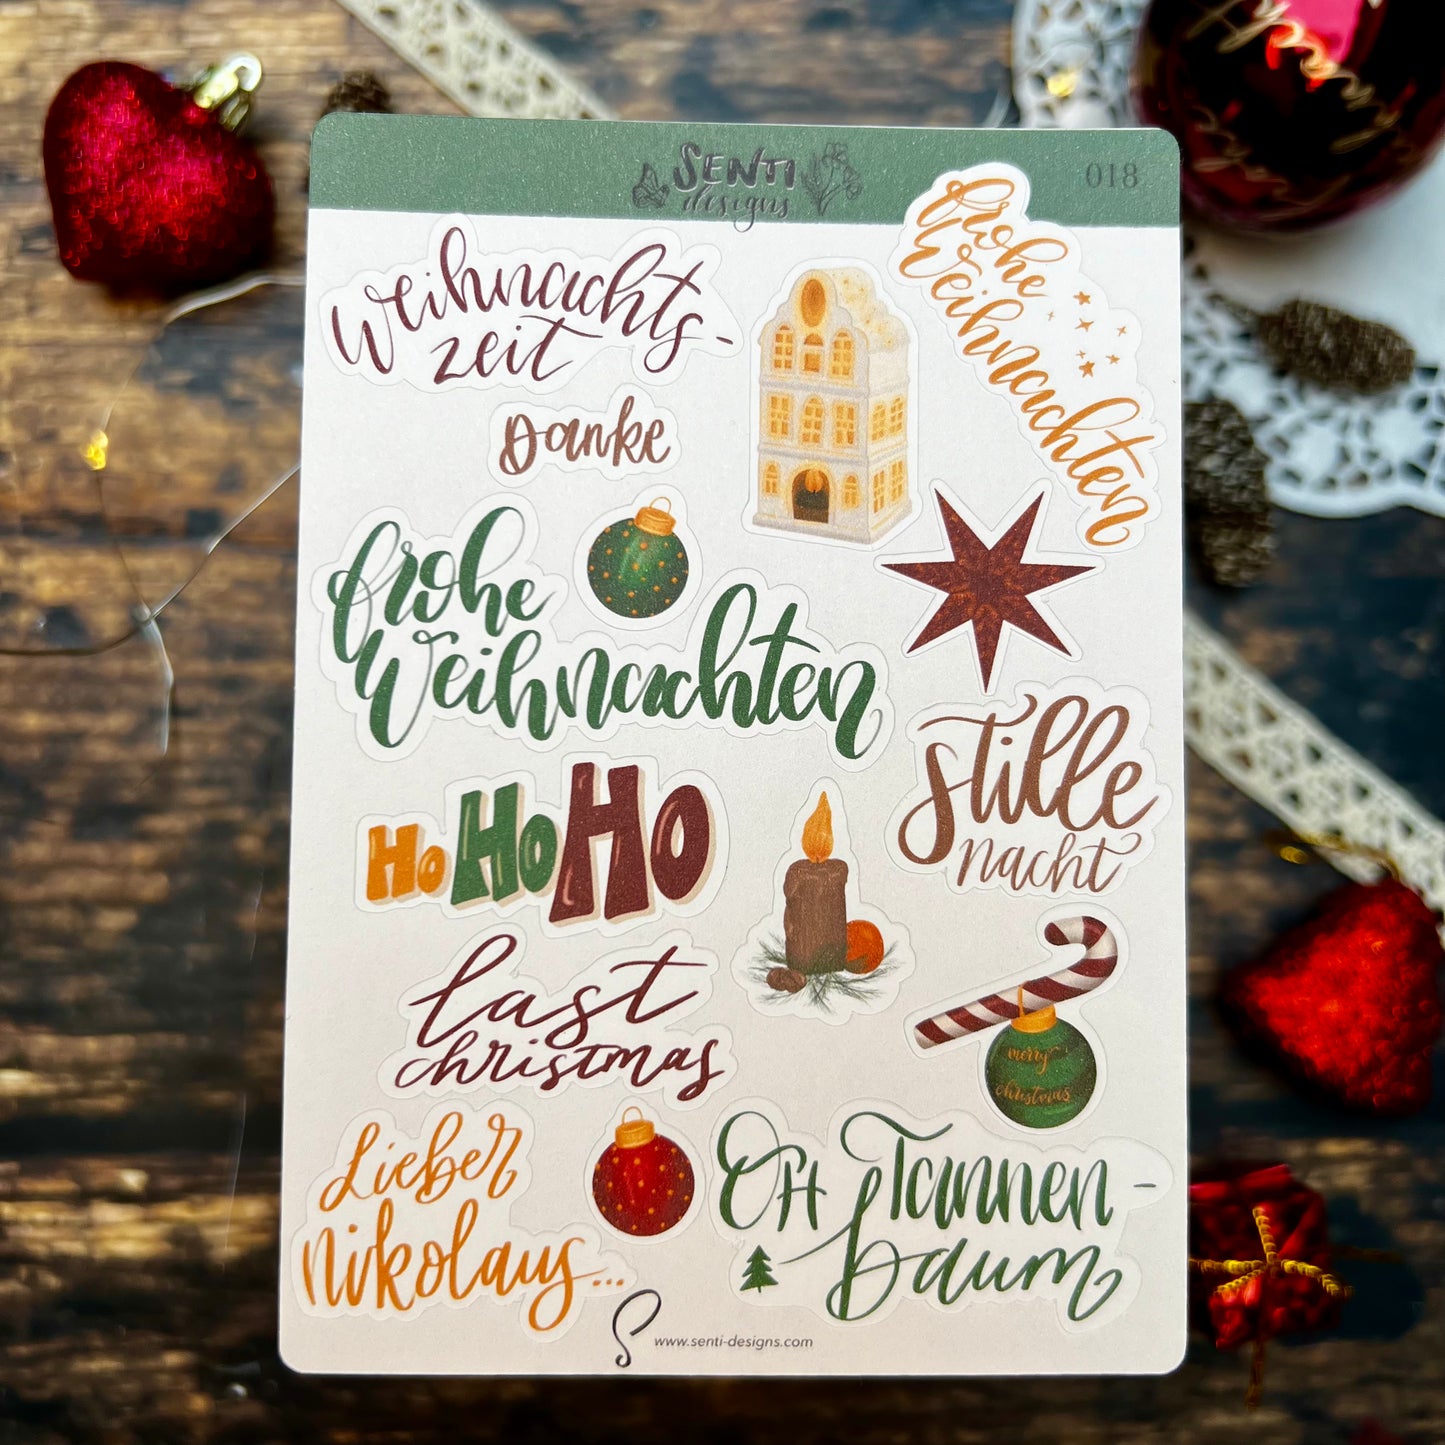 SENTI
designs
018
Weihnachts-
zeit
frohe
Weihnachten
Danke
frohe
Weihnachten
HO HO HO
stille
nacht
last
christmas
merry
christmas
Lieber
nikolaus...
OH Tannen-
baum
www.senti-designs.com